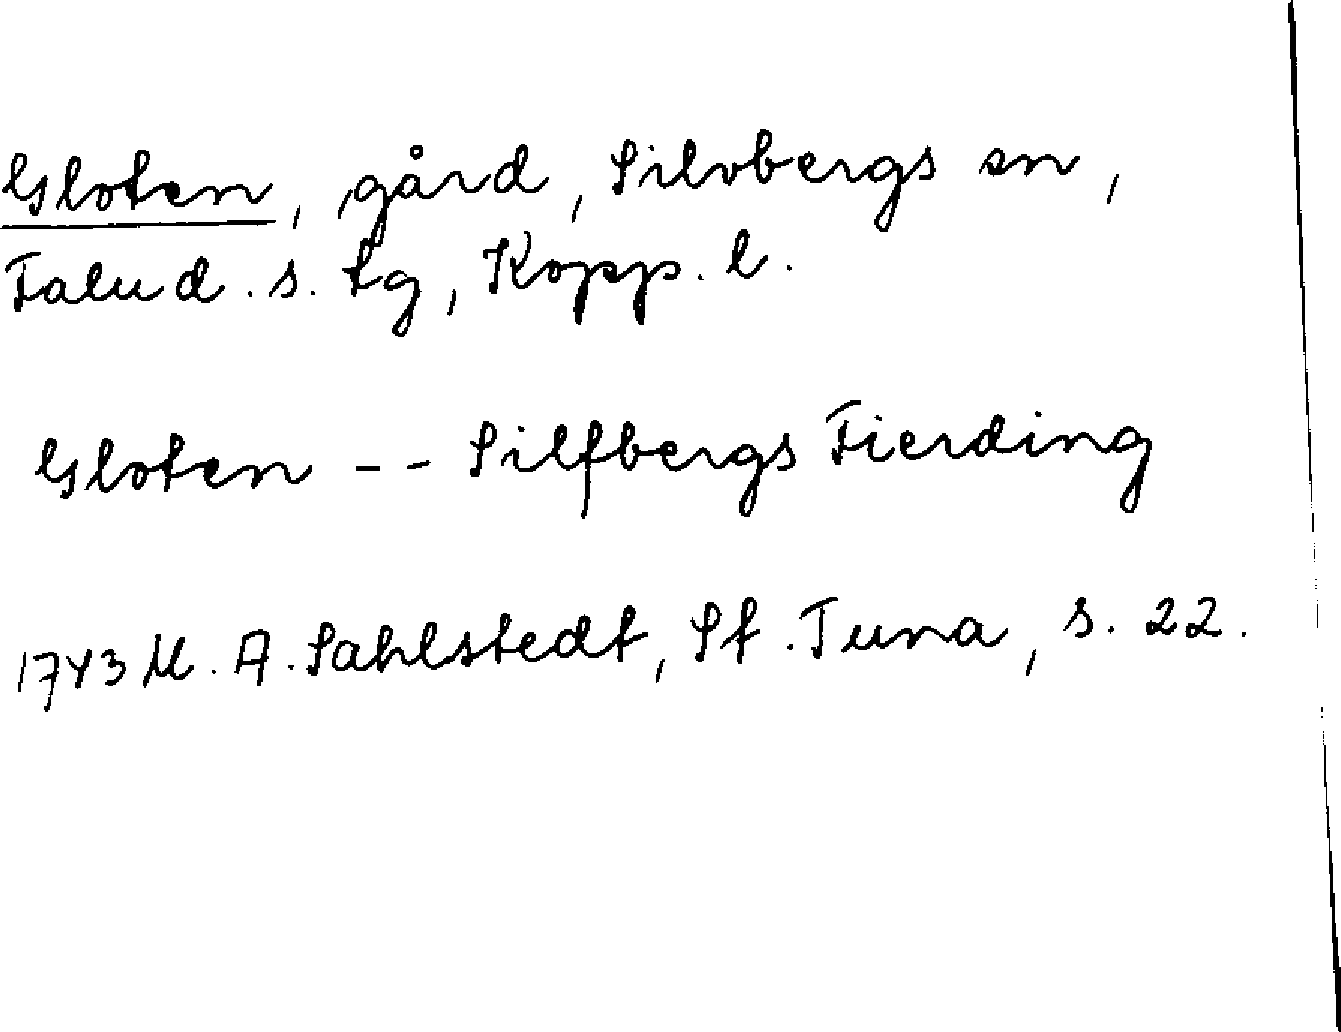 Gloten, gård, Silvbergs sn,
Falu d. s. tg, Kopp. l.
Gloten -- Silfbergs Fierding
1743 M. A. Sahlstedt, St. Tuna, s. 22.